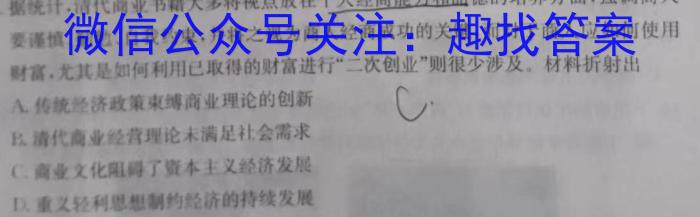 据统计,清代商业书籍大多将视点放在个人经商能力和品德的培养方面,强调商人
要谨慎
微信公众号关注:趣找答案
成功的关
使用
财富,尤其是如何利用已取得的财富进行“二次创业”则很少涉及。材料折射出
A. 传统经济政策束缚商业理论的创新
B. 清代商业经营理论未满足社会需求
C. 商业文化阻碍了资本主义经济发展
D. 重义轻利思想制约经济的持续发展
C.